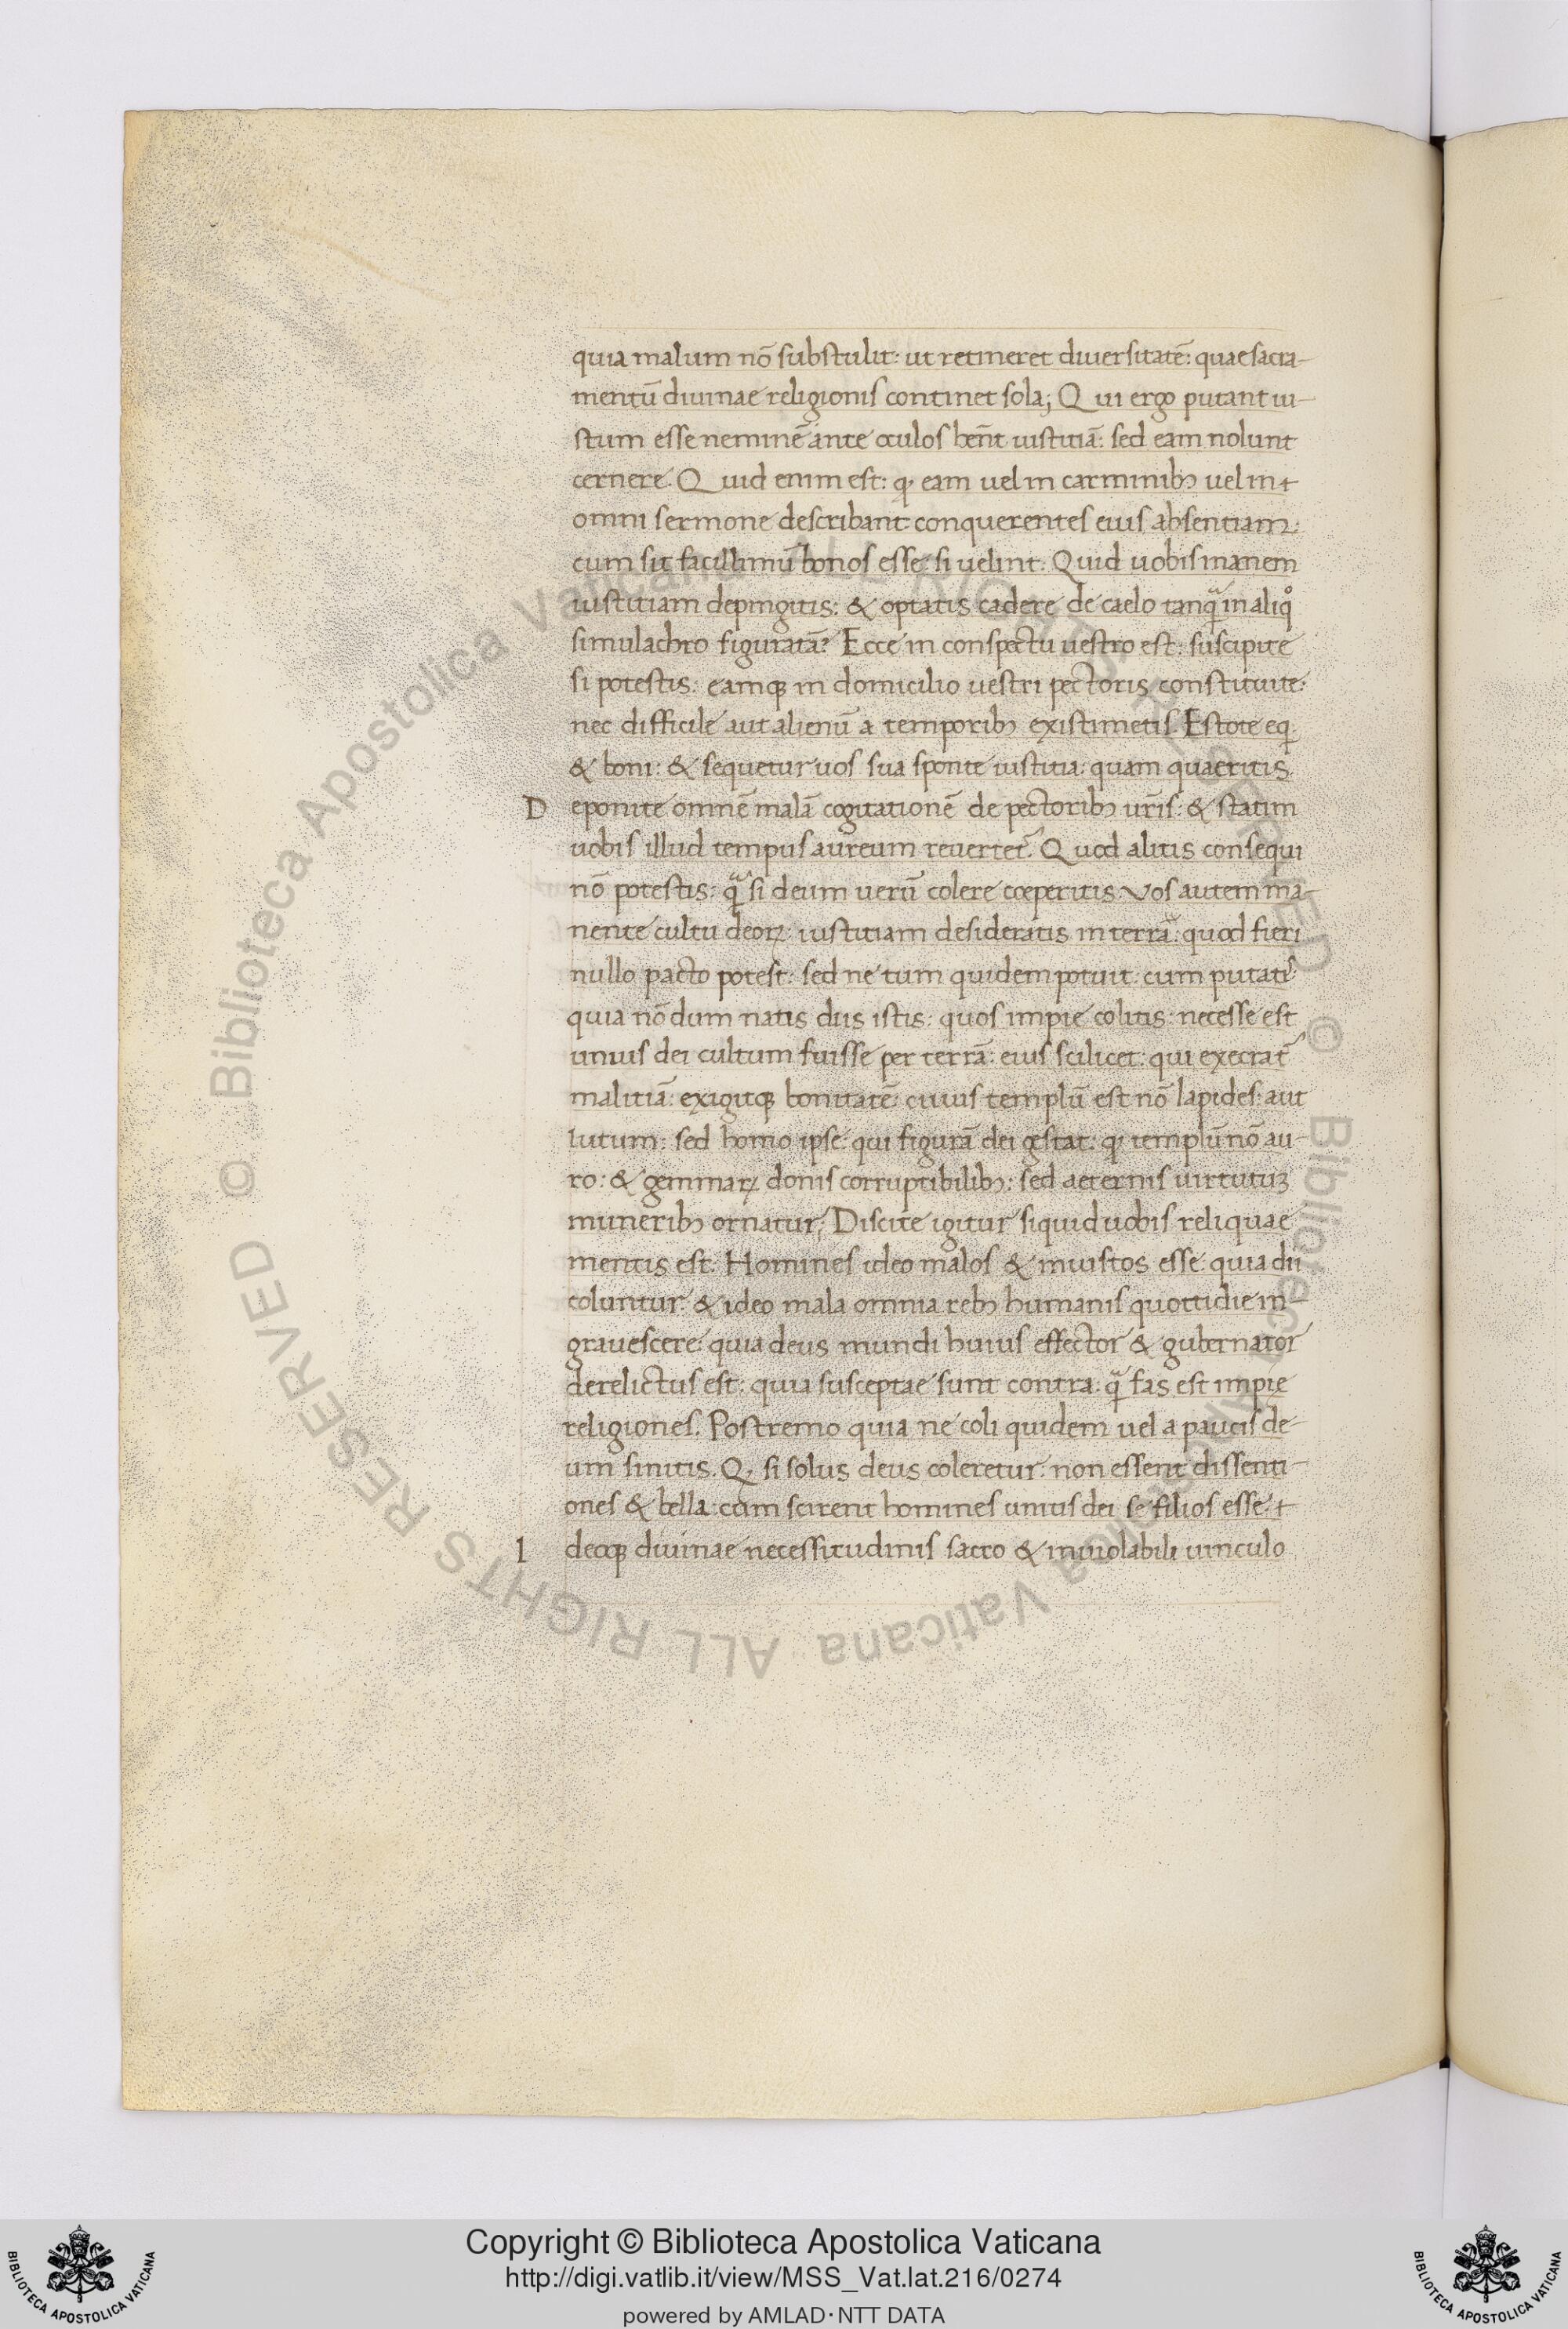 quia malum nō substulit: ut retineret diuersitatē: quae sacra-
mentū diuinae religionis continet sola; Qui ergo putant iu-
stum esse neminē ante oculos hēnt iustitiā: sed eam nolunt
cernere. Quid enim est: ꝙ eam uel in carminibꝫ uel in
omni sermone describant conquerentes eius absentiam:
cum sit facillimū bonos esse: si uelint. Quid uobis inanem
iustitiam depingitis: & optatis cadere de caelo tanqͣ̄ in aliqͦ
simulachro figuratā? Ecce in conspectu uestro est: suscipite
si potestis: eamqꝫ in domicilio uestri pectoris constituite:
nec difficile aut alienū a temporibꝫ existimetis. Estote eq
& boni: & sequetur uos sua sponte iustitia: quam quaeritis
Deponite omnē malā cogitationē de pectoribꝫ ur̄is: & statim
uobis illud tempus aureum reuertet᷑. Quod alitis consequi
nō potestis: qͣ̄ si deum uerū colere coeperitis. Vos autem ma-
nente cultu deorꝝ: iustitiam desideratis in terrā: quod fieri
nullo pacto potest: sed ne tum quidem potuit: cum putatꝭ:
quia nōdum natis diis istis: quos impie colitis: necesse est
unius dei cultum fuisse per terrā: eius scilicet: qui execrat᷑
malitiā: exigitqꝫ bonitatē: cuius templū est nō lapides: aut
lutum: sed homo ipse: qui figurā dei gestat: ꝙ templū nō au-
ro: & gemmarꝝ donis corruptibilibꝫ: sed aeternis uirtutuꝫ
muneribꝫ ornatur; Discite igitur siquid uobis reliquae
mentis est. Homines ideo malos & iniustos esse: quia dii
coluntur: & ideo mala omnia rebꝫ humanis quottidie in-
grauescere: quia deus mundi huius effector & gubernator
derelictus est: quia susceptae sunt contra: qͣ̄ fas est impie
religiones. Postremo quia ne coli quidem uel a paucis de-
um sinitis. Ꝙ si solus deus coleretur: non essent dissenti-
ones & bella: cum scirent homines unius dei se filios esse:
Ideoqꝫ diuinae necessitudinis sacro & inuiolabili uinculo
© Biblioteca Apostolica Vaticana ALL RIGHTS RESERVED © Biblioteca Apostolica Vaticana ALL RIGHTS RESERVED
Copyright © Biblioteca Apostolica Vaticana
http://digi.vatlib.it/view/MSS_Vat.lat.216/0274
powered by AMLAD·NTT DATA
BIBLIOTECA APOSTOLICA VATICANA
BIBLIOTECA APOSTOLICA VATICANA